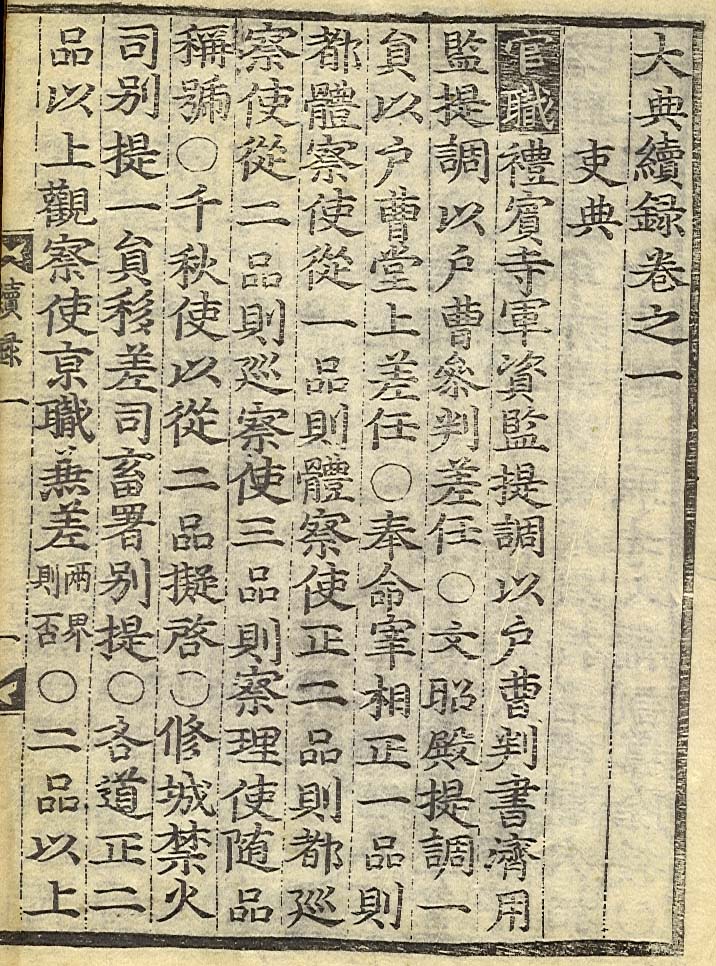 大典續録卷之一
吏典
官職禮賓寺軍資監提調以戶曹判書濟用
監提調以戶曹叅判差任○文昭殿提調一
貟以戶曹堂上差任○奉命宰相正一品則
都體察使從一品則體察使正二品則都巡
察使從二品則巡察使三品則察理使随品
稱號○千秋使以從二品擬啓○修城禁火
司别提一貟移差司畜署别提○各道正二
品以上觀察使京職兼差兩界則否○二品以上
續录一